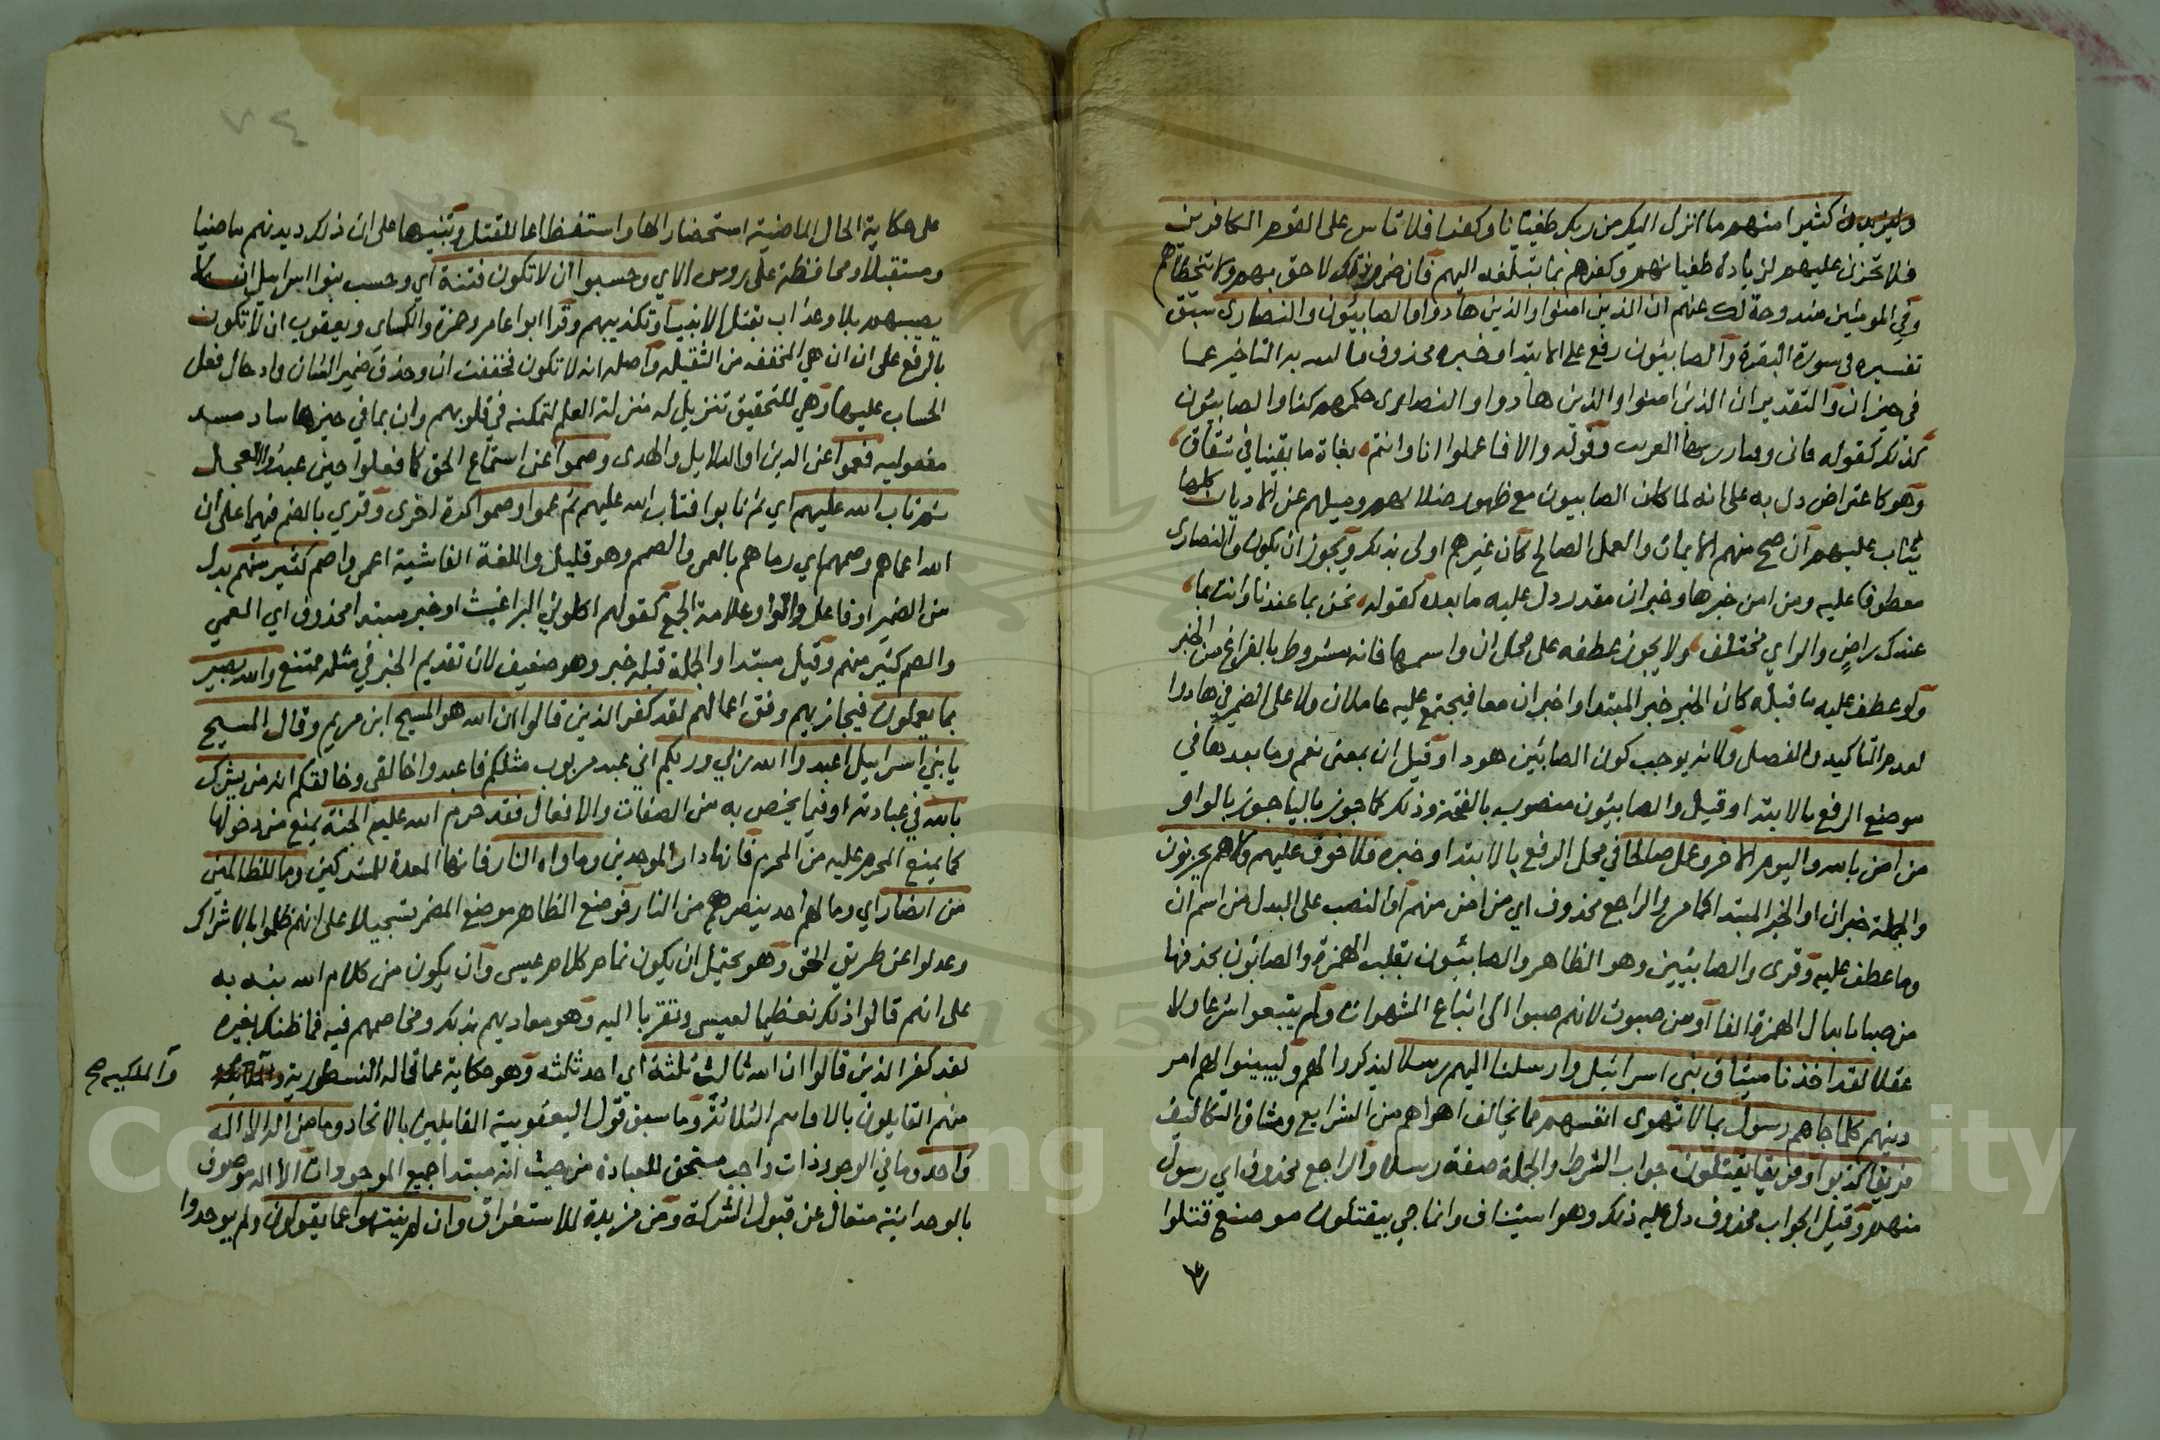 وليزيدن كثيرا منهم ما انزل اليك من ربك طغيانا وكفرا فلا تاس على القوم الكافرين
فلا تحزن عليهم لزيادة طغيانهم وكفرهم بما تبلغه اليهم فان ضرر ذلك لاحق بهم ولا يتخطاهم
وفي المومنين مندوحة لك عنهم ان الذين امنوا والذين هادوا والصابئون والنصارى سبق
تفسيره في سورة البقرة والصابئون رفع على الابتدا وخبره محذوف والنية به التاخير عما
في حيز ان والتقدير ان الذين امنوا والذين هادوا والنصارى حكمهم كذا والصابئون
كذلك كقوله فاني وقيار بها لغريب وقوله والا فاعلموا انا وانتم بغاة ما بقينا في شقاق
وهو كاعتراض دل به على انه لما كان الصابيون مع ظهور ضلالهم وميلهم عن الاديان كلها
يتاب عليهم ان صح منهم الايمان والعمل الصالح كان غيرهم اولى بذلك ويجوز ان يكون والنصارى
معطوفا عليه ومن امن خبرها وخبر ان مقدر دل عليه ما بعده كقوله نحن بما عندنا وانت بما
عندك راض والراي مختلف ولا يجوز عطفه على محل ان واسمها فانه مشروط بالفراغ من الخبر
ولو عطف عليه ما قبله كان الخبر خبر المبتدا وخبر ان معا فيجتمع عليه عاملان ولا على الضمير في هادوا
لعدم التاكيد والفصل ولانه يوجب كون الصابئين هودا وقيل ان بمعنى نعم وما بعدها في
موضع الرفع بالابتدا وقيل والصابيئون منصوب بالفتحة وذلك كما جوز باليا جوز بالواو
من امن بالله واليوم الاخر وعمل صالحا في محل الرفع بالابتدا وخبره فلا خوف عليهم ولا هم يحزنون
والجملة خبر ان او الخبر المبتدا كما مر والراجع محذوف اي من امن منهم او النصب على البدل من اسم ان
وما عطف عليه وقرى والصابيئين وهو الظاهر والصابيون بقلب الهمزة والصابون بحذفها
من صبا بابدال الهمزة الفا او من صبوت لانهم صبوا الى اتباع الشهوات ولم يتبعوا شرعا ولا
عقلا لقد اخذنا ميثاق بني اسرائيل وارسلنا اليهم رسلا ليذكروا لهم وليبينوا لهم امر
دينهم كلما جاهم رسول بما لا تهوى انفسهم مما يخالف اهواهم من الشرايع ومشاق التكاليف
فريقا كذبوا وفريقا يقتلون جواب الشرط والجملة صفة رسلا والراجع محذوف اي رسول
منهم وقيل الجواب محذوف دل عليه ذلك وهو استيناف وانما جي بيقتلون موضع قتلوا
على حكاية الحال الماضية استحضارا لها واستفظاعا للقتل وتنبيها على ان ذلك ديدنهم ماضيا
ومستقبلا ومحافظة على روس الاي وحسبوا ان لا تكون فتنة اي وحسب بنوا اسرايل ان لا
يصيبهم بلا وعذاب بقتل الانبيا وتكذيبهم وقرا ابوا عامر وحمزة والكساي ويعقوب ان لا تكون
بالرفع على ان ان هي المخففه من الثقيله واصله انه لا تكون فخففت ان وحذف ضمير الشان وادخال فعل
الحساب عليها وهي للتحقيق تنزيل له منزلة العلم لتمكنه في قلوبهم وان بما في حيزها ساد مسد
مفعوليه فعموا عن الدين او الدلايل والهدى وصموا عن استماع الحق كما فعلوا حين عبدوا العجل
ثم تاب الله عليهم اي ثم تابوا فتاب الله عليهم ثم عموا وصموا كرة اخرى وقرى بالضم فيهما على ان
الله اعماهم وصمهم اي رماهم بالعمى والصمم وهو قليل واللغة الفاشية اعمى واصم كثير منهم بدل
من الضمير او فاعل والواو علامة الجمع كقولهم اكلوني البراغيث او خبر مبتدا محذوف اي العمي
والصم كثير منهم وقيل مبتدا والجملة قبله خبر وهو ضعيف لان تقديم الخبر في مثله ممتنع والله بصير
بما يعملون فيجازيهم وفق اعمالهم لقد كفر الذين قالوا ان الله هو المسيح ابن مريم وقال المسيح
يا بني اسرايل اعبدوا الله ربي وربكم اني عبد مربوب مثلكم فاعبدوا خالقي وخالقكم انه من يشرك
بالله في عبادته او فيما يختص به من الصفات والافعال فقد حرم الله عليه الجنة يمنع من دخولها
كما يمنع المحرم عليه من المحرم فانها دار الموحدين وماواه النار فانها المعدة للمشركين وما للظالمين
من انصار اي وما لهم احد ينصرهم من النار فوضع الظاهر موضع المضمر تسجيلا على انهم ظلموا بالاشراك
وعدلوا عن طريق الحق وهو يحتمل ان يكون تمام كلام عيسى وان يكون من كلام الله ينبه به
على انهم قالوا ذلك تعظيما لعيسى وتقربا اليه وهو معاديهم بذلك ومخاصمهم فيه فما ظنك بغيره
لقد كفر الذين قالوا ان الله ثالث ثلثة اي احد ثلثه وهو حكاية عما قاله النسطورية
والملكيه صح
منهم القايلون بالاقانيم الثلاثة وما سبق قول اليعقوبية القايلين بالاتحاد وما من اله الا اله
واحد وما في الوجود ذات واجب مستحق للعبادة من حيث انه مبتدا جميع الموجودات الا اله موصوف
بالوحدانية متعال عن قبول الشركة ومن مزيدة للاستغراق وان لم ينتهوا عما يقولون ولم يوحدوا